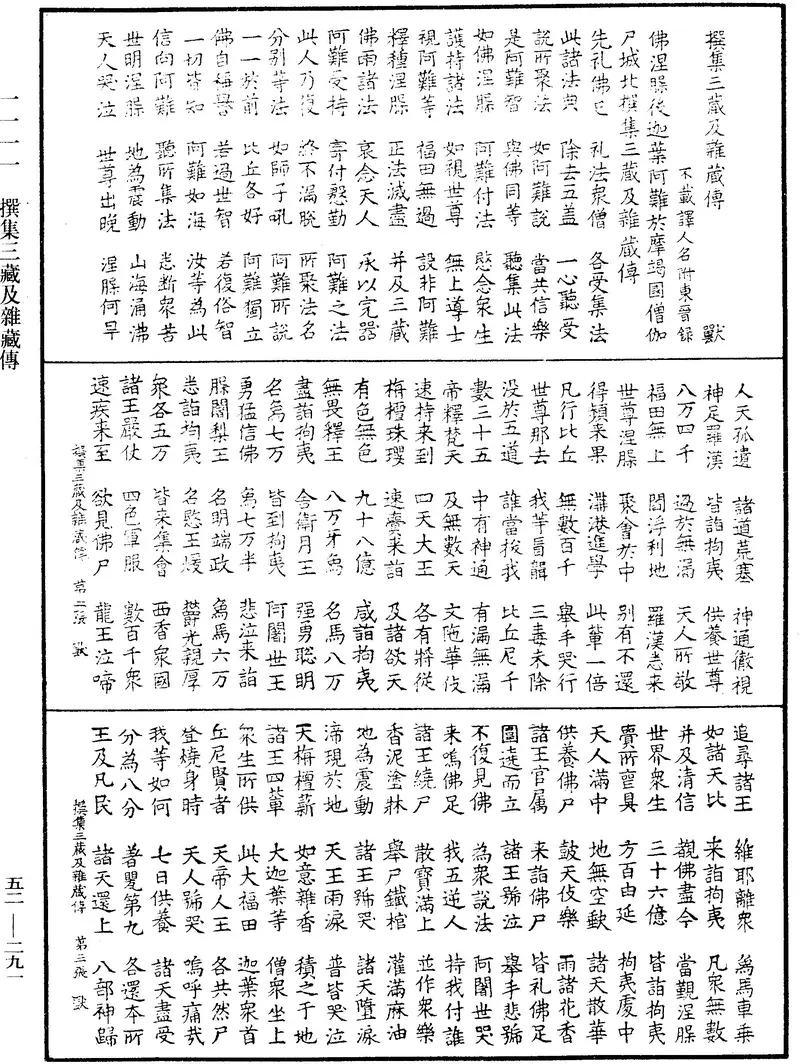 撰集三藏及雜藏傳
不載譯人名附東晉錄 獸
佛涅槃後迦葉阿難於摩竭國僧伽
尸城北撰集三藏及雜藏傳
先礼佛已 礼法衆僧 各受集法
此諸法典 除去五蓋 一心聽受
說所聚法 如阿難說 當共信樂
是阿難智 與佛同等 聽集此法
如佛涅槃 阿難付法 愍念衆生
護持諸法 如視世尊 無上導士
視阿難等 福田無過 設非阿難
釋種涅槃 正法滅盡 并及三藏
佛雨諸法 哀念天人 承以完器
阿難受持 寄付慇勤 阿難之法
此人乃復 終不漏脫 所聚法名
分别等法 如師子吼 阿難所說
一一於前 比丘各好 阿難獨立
佛自稱譽 若過世智 若復俗智
一切皆知 阿難如海 汝等為此
信向阿難 聽所集法 悉斷衆苦
世明涅槃 地為震動 山海涌沸
天人哭泣 世尊出晚 涅槃何早
人天孤遺 諸道荒塞 神通徹視
神足羅漢 皆詣拘夷 供養世尊
八万四千 過於無漏 天人所敬
福田無上 閻浮利地 羅漢悉来
世尊涅槃 聚會於中 别有不還
得頻来果 溝港進學 此輩一倍
凡行比丘 無數百千 舉手哭行
世尊那去 我等盲瞽 三毒未除
没於五道 誰當拔我 比丘尼千
數三十五 中有神通 有漏無漏
帝釋梵天 及無數天 文陁華伎
速持来到 四天大王 各有將從
栴檀珠瓔 速齎来詣 及諸欲天
有色無色 九十八億 咸詣拘夷
無畏釋王 八万牙象 名馬八万
盡詣拘夷 舍衛月王 强勇聦明
名象七万 皆到拘夷 阿闍世王
勇猛信佛 象七万半 悲泣来詣
闍梨王 名明端政 象馬六万
悉詣拘夷 名愍王煖 欝光親厚
衆各五万 皆来集會 西香衆國
諸王嚴仗 四色軍服 數百千衆
速疾来至 欲見佛尸 龍王泣啼
撰集三藏及雜藏傳 第二張 獸
追尋諸王 維耶離衆 象馬車乗
如諸天比 来詣拘夷 凡衆無數
并及清信 覩佛盡今 當觀涅槃
世界衆生 三十六億 皆詣拘夷
賣所賷具 方百由延 拘夷處中
天人滿中 地無空缺 諸天散華
供養佛尸 鼓天伎樂 雨諸花香
諸王官属 来詣佛尸 皆礼佛足
圍遶而立 諸王號泣 舉手悲號
不復見佛 為衆說法 阿闍世哭
来嗚佛足 我五逆人 持我付誰
諸王繞尸 散寶滿上 並作衆樂
香泥塗牀 舉尸鐵棺 灌滿麻油
地為震動 諸王號哭 諸天墮淚
渧現於地 天王雨淚 普皆哭泣
天栴檀薪 如意雜香 積之于地
諸王四輩 大迦葉等 僧衆坐上
衆生所供 此大福田 迦葉衆首
丘尼賢者 天帝人王 各共然尸
登燒身時 天人號哭 嗚呼痛㢤
我等如何 七日供養 諸天盡受
分為八分 著甖第九 各還本所
王及凡民 諸天還上 八部神歸
撰集三藏及雜藏傳 第三張 獸
一一一一 撰集三藏及雜藏傳
五二—二九一